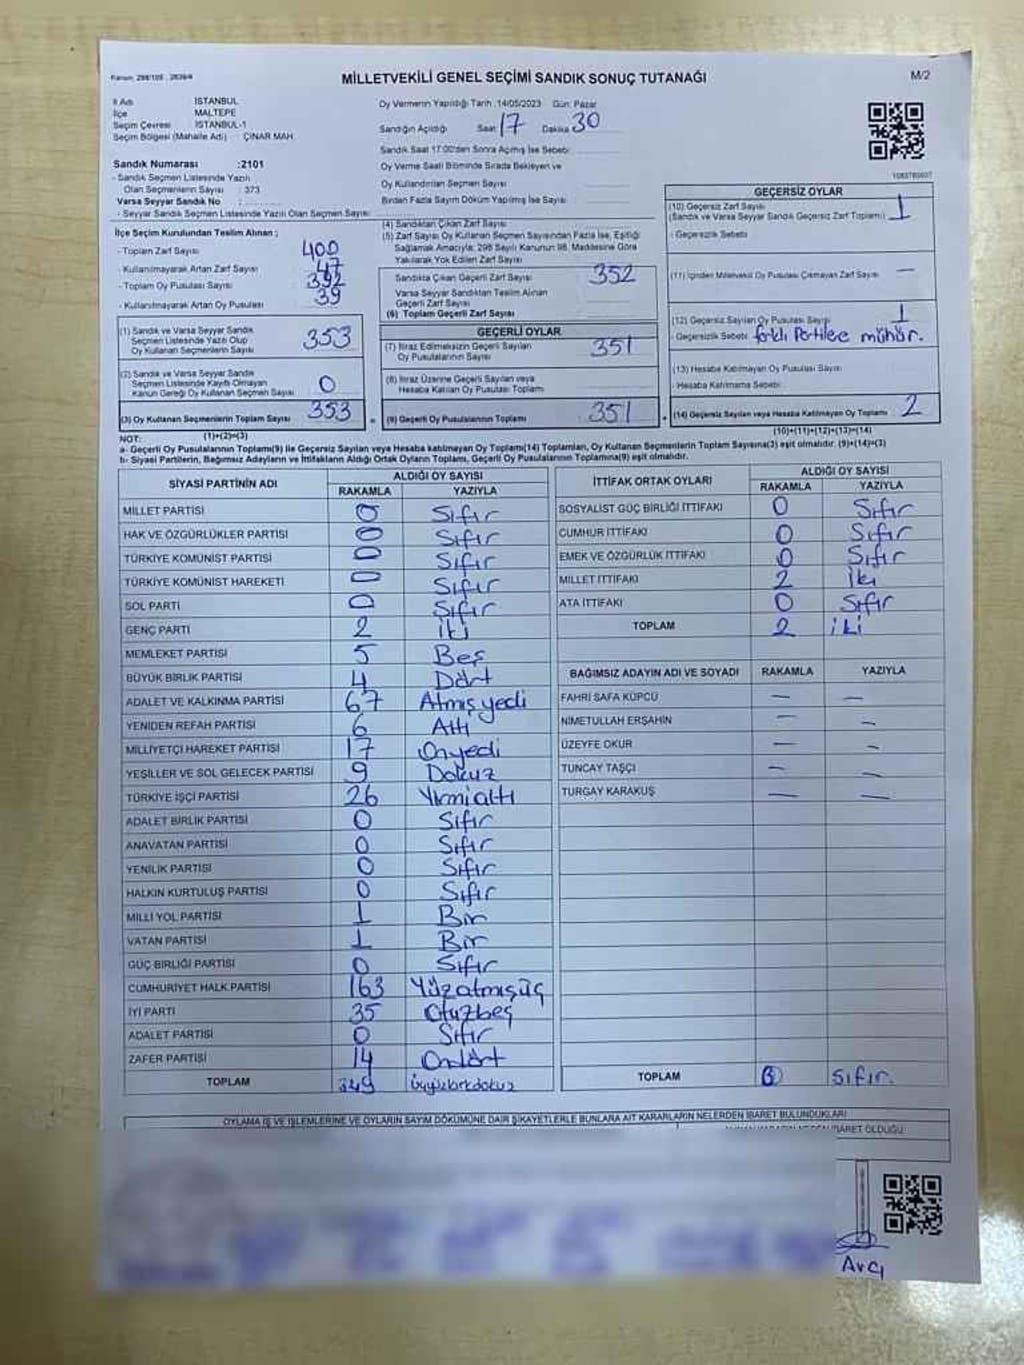 Kanun: 298/105 , 2839/4
MİLLETVEKİLİ GENEL SEÇİMİ SANDIK SONUÇ TUTANAĞI
M/2
İl Adı İSTANBUL
İlçe MALTEPE
Seçim Çevresi İSTANBUL-1
Seçim Bölgesi (Mahalle Adı) : ÇINAR MAH.
Oy Vermenin Yapıldığı Tarih :14/05/2023 Gün: Pazar
Sandığın Açıldığı Saat 17 Dakika 30
Sandık Saat 17:00'den Sonra Açılmış İse Sebebi:
Oy Verme Saati Bitiminde Sırada Bekleyen ve
Oy Kullandırılan Seçmen Sayısı
Birden Fazla Sayım Döküm Yapılmış İse Sayısı
Sandık Numarası :2101
- Sandık Seçmen Listesinde Yazılı
Olan Seçmenlerin Sayısı : 373
Varsa Seyyar Sandık No
- Seyyar Sandık Seçmen Listesinde Yazılı Olan Seçmen Sayısı:
İlçe Seçim Kurulundan Teslim Alınan ;
- Toplam Zarf Sayısı 400
- Kullanılmayarak Artan Zarf Sayısı 47
- Toplam Oy Pusulası Sayısı 392
- Kullanılmayarak Artan Oy Pusulası 39
(1) Sandık ve Varsa Seyyar Sandık
Seçmen Listesinde Yazılı Olup
Oy Kullanan Seçmenlerin Sayısı 353
(2) Sandık ve Varsa Seyyar Sandık
Seçmen Listesinde Kayıtlı Olmayan
Kanun Gereği Oy Kullanan Seçmen Sayısı 0
(3) Oy Kullanan Seçmenlerin Toplam Sayısı 353
(1)+(2)=(3)
(4) Sandıktan Çıkan Zarf Sayısı
(5) Zarf Sayısı Oy Kullanan Seçmen Sayısından Fazla İse, Eşitliği
Sağlamak Amacıyla; 298 Sayılı Kanunun 98. Maddesine Göre
Yakılarak Yok Edilen Zarf Sayısı
Sandıkta Çıkan Geçerli Zarf Sayısı 352
Varsa Seyyar Sandıktan Teslim Alınan
Geçerli Zarf Sayısı
(6) Toplam Geçerli Zarf Sayısı
GEÇERLİ OYLAR
(7) İtiraz Edilmeksizin Geçerli Sayılan
Oy Pusulalarının Sayısı 351
(8) İtiraz Üzerine Geçerli Sayılan veya
Hesaba Katılan Oy Pusulası Toplamı
(9) Geçerli Oy Pusulalarının Toplamı 351
1083780607
GEÇERSİZ OYLAR
(10) Geçersiz Zarf Sayısı 1
(Sandık ve Varsa Seyyar Sandık Geçersiz Zarf Toplamı)
- Geçersizlik Sebebi
(11) İçinden Milletvekili Oy Pusulası Çıkmayan Zarf Sayısı —
(12) Geçersiz Sayılan Oy Pusulası Sayısı 1
- Geçersizlik Sebebi farklı Partilere mühür.
(13) Hesaba Katılmayan Oy Pusulası Sayısı
- Hesaba Katılmama Sebebi
(14) Geçersiz Sayılan veya Hesaba Katılmayan Oy Toplamı 2
(10)+(11)+(12)+(13)=(14)
NOT:
a- Geçerli Oy Pusulalarının Toplamı(9) ile Geçersiz Sayılan veya Hesaba katılmayan Oy Toplamı(14) Toplamları, Oy Kullanan Seçmenlerin Toplam Sayısına(3) eşit olmalıdır. (9)+(14)=(3)
b- Siyasi Partilerin, Bağımsız Adayların ve İttifakların Aldığı Ortak Oyların Toplamı, Geçerli Oy Pusulalarının Toplamına(9) eşit olmalıdır.
SİYASİ PARTİNİN ADI ALDIĞI OY SAYISI
RAKAMLA YAZIYLA
MİLLET PARTİSİ 0 Sıfır
HAK VE ÖZGÜRLÜKLER PARTİSİ 0 Sıfır
TÜRKİYE KOMÜNİST PARTİSİ 0 Sıfır
TÜRKİYE KOMÜNİST HAREKETİ 0 Sıfır
SOL PARTİ 0 Sıfır
GENÇ PARTİ 2 İki
MEMLEKET PARTİSİ 5 Beş
BÜYÜK BİRLİK PARTİSİ 4 Dört
ADALET VE KALKINMA PARTİSİ 67 Atmışyedi
YENİDEN REFAH PARTİSİ 6 Altı
MİLLİYETÇİ HAREKET PARTİSİ 17 Onyedi
YEŞİLLER VE SOL GELECEK PARTİSİ 9 Dokuz
TÜRKİYE İŞÇİ PARTİSİ 26 Yirmialtı
ADALET BİRLİK PARTİSİ 0 Sıfır
ANAVATAN PARTİSİ 0 Sıfır
YENİLİK PARTİSİ 0 Sıfır
HALKIN KURTULUŞ PARTİSİ 0 Sıfır
MİLLİ YOL PARTİSİ 1 Bir
VATAN PARTİSİ 1 Bir
GÜÇ BİRLİĞİ PARTİSİ 0 Sıfır
CUMHURİYET HALK PARTİSİ 163 Yüzatmışüç
İYİ PARTİ 35 Otuzbeş
ADALET PARTİSİ 0 Sıfır
ZAFER PARTİSİ 14 Ondört
TOPLAM 349 Üçyüzkırkdokuz
İTTİFAK ORTAK OYLARI ALDIĞI OY SAYISI
RAKAMLA YAZIYLA
SOSYALİST GÜÇ BİRLİĞİ İTTİFAKI 0 Sıfır
CUMHUR İTTİFAKI 0 Sıfır
EMEK VE ÖZGÜRLÜK İTTİFAKI 0 Sıfır
MİLLET İTTİFAKI 2 İki
ATA İTTİFAKI 0 Sıfır
TOPLAM 2 iki
BAĞIMSIZ ADAYIN ADI VE SOYADI RAKAMLA YAZIYLA
FAHRİ SAFA KÜPCÜ — —
NİMETULLAH ERŞAHİN — —
ÜZEYFE OKUR — —
TUNCAY TAŞÇI — —
TURGAY KARAKUŞ — —
TOPLAM 0 Sıfır.
OYLAMA İŞ VE İŞLEMLERİNE VE OYLARIN SAYIM DÖKÜMÜNE DAİR ŞİKAYETLERLE BUNLARA AİT KARARLARIN NELERDEN İBARET BULUNDUKLARI
İBARET OLDUĞU
Avcı